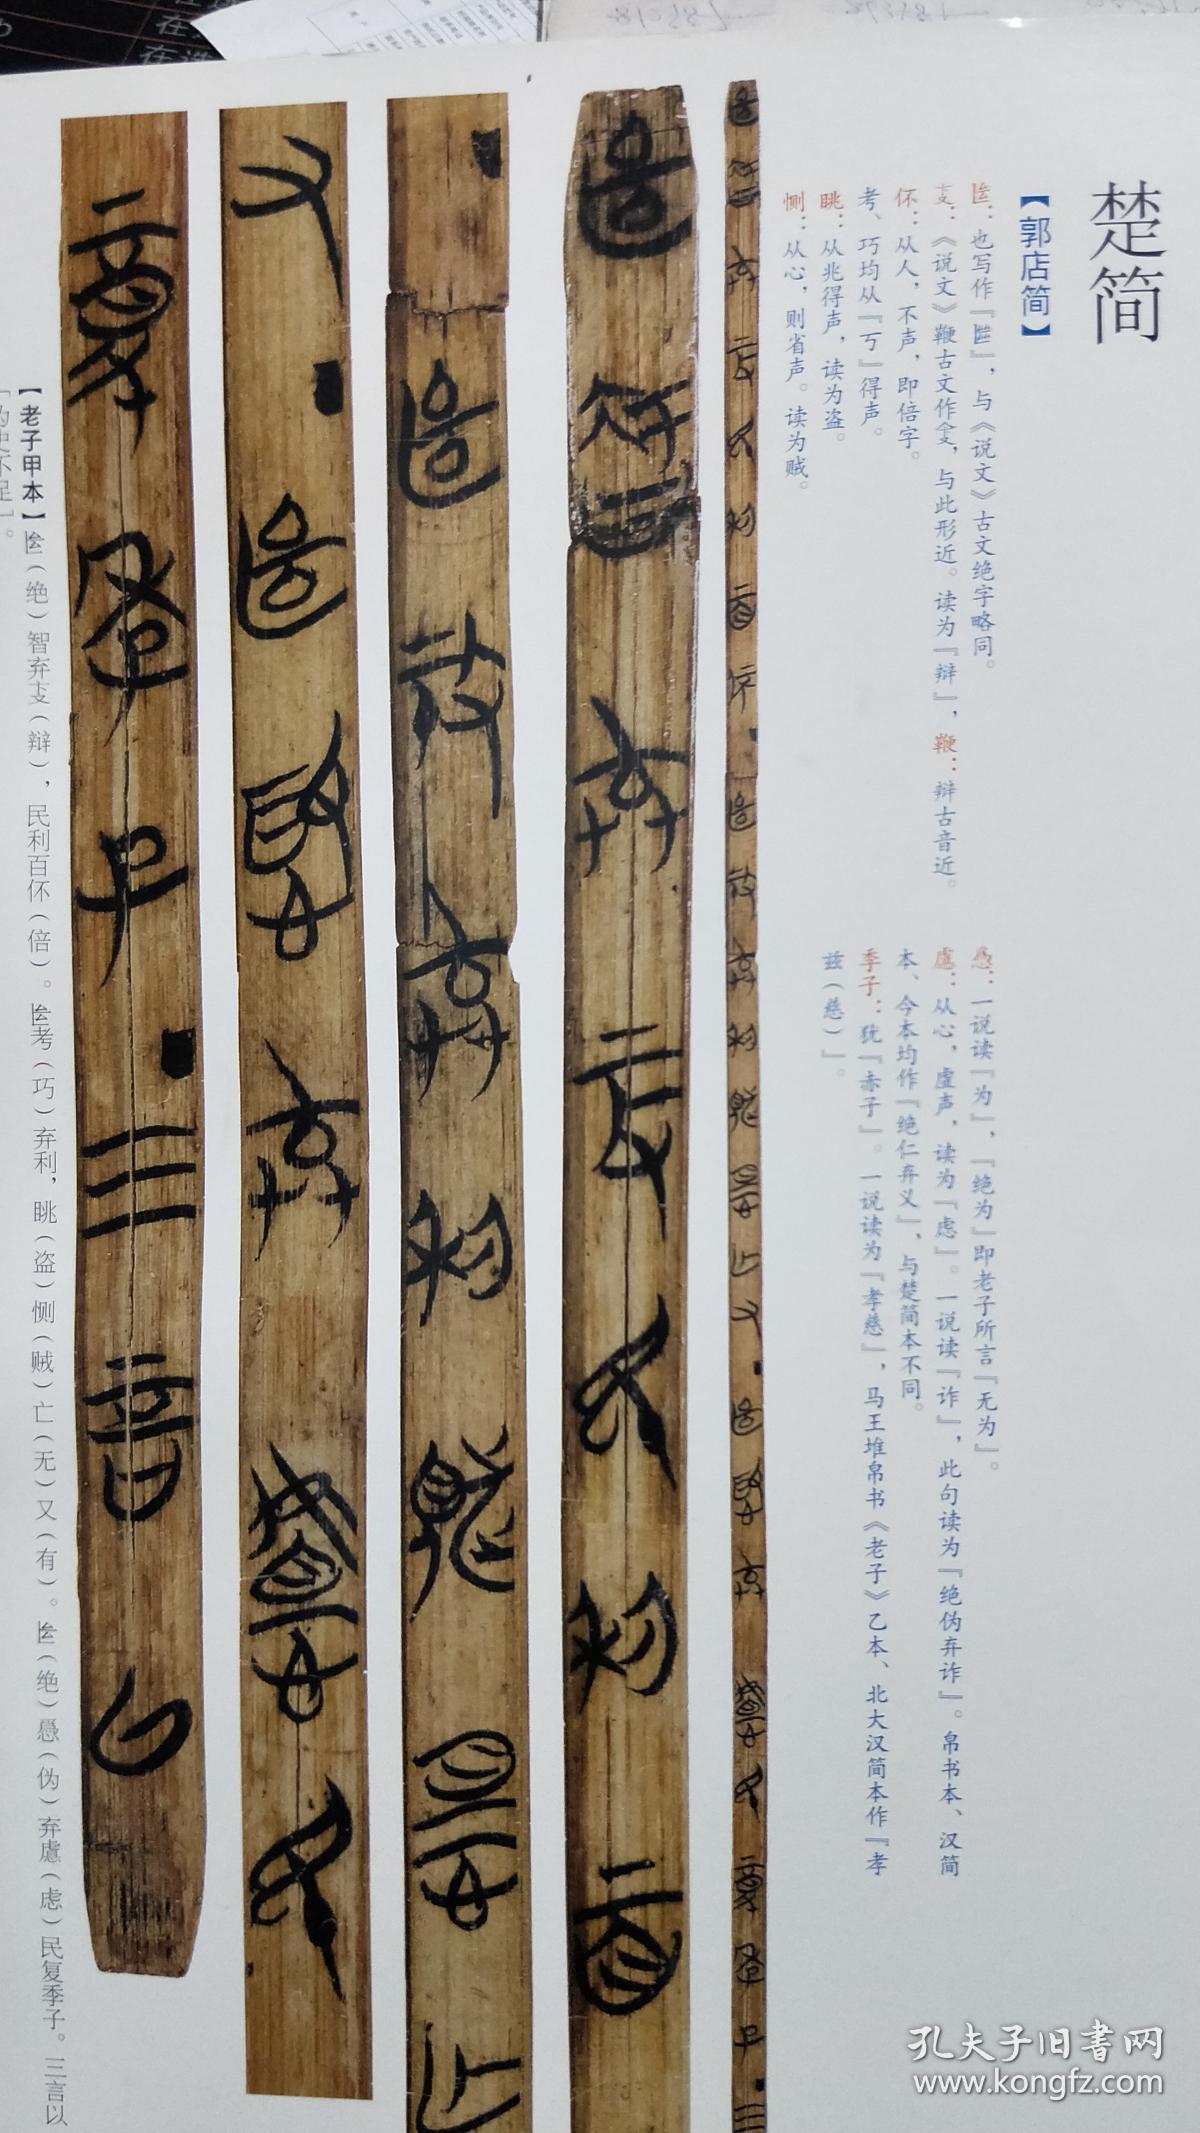 楚简
【郭店简】
𢇍：也写作『𢇍』，与《说文》古文绝字略同。
攴：《说文》鞭古文作㪅，与此形近。读为『辩』，鞭：辩古音近。
伓：从人，不声，即倍字。
考、巧均从『丂』得声。
眺：从兆得声，读为盗。
恻：从心，则省声。读为贼。
𢡺：一说读『为』，『绝为』即老子所言『无为』。
慮：从心，虘声，读为『虑』。一说读『诈』，此句读为『绝伪弃诈』。帛书本、汉简
本、今本均作『绝仁弃义』，与楚简本不同。
季子：犹『赤子』。一说读为『孝慈』，马王堆帛书《老子》乙本、北大汉简本作『孝
兹（慈）』。
【老子甲本】（绝）智弃（辩），民利百伓（倍）。考（巧）弃利，眺（盗）恻（贼）亡（无）又（有）。（绝）（伪）弃（虑）民复季子。三言以
不足』。
孔夫子旧书网
www.kongfz.com